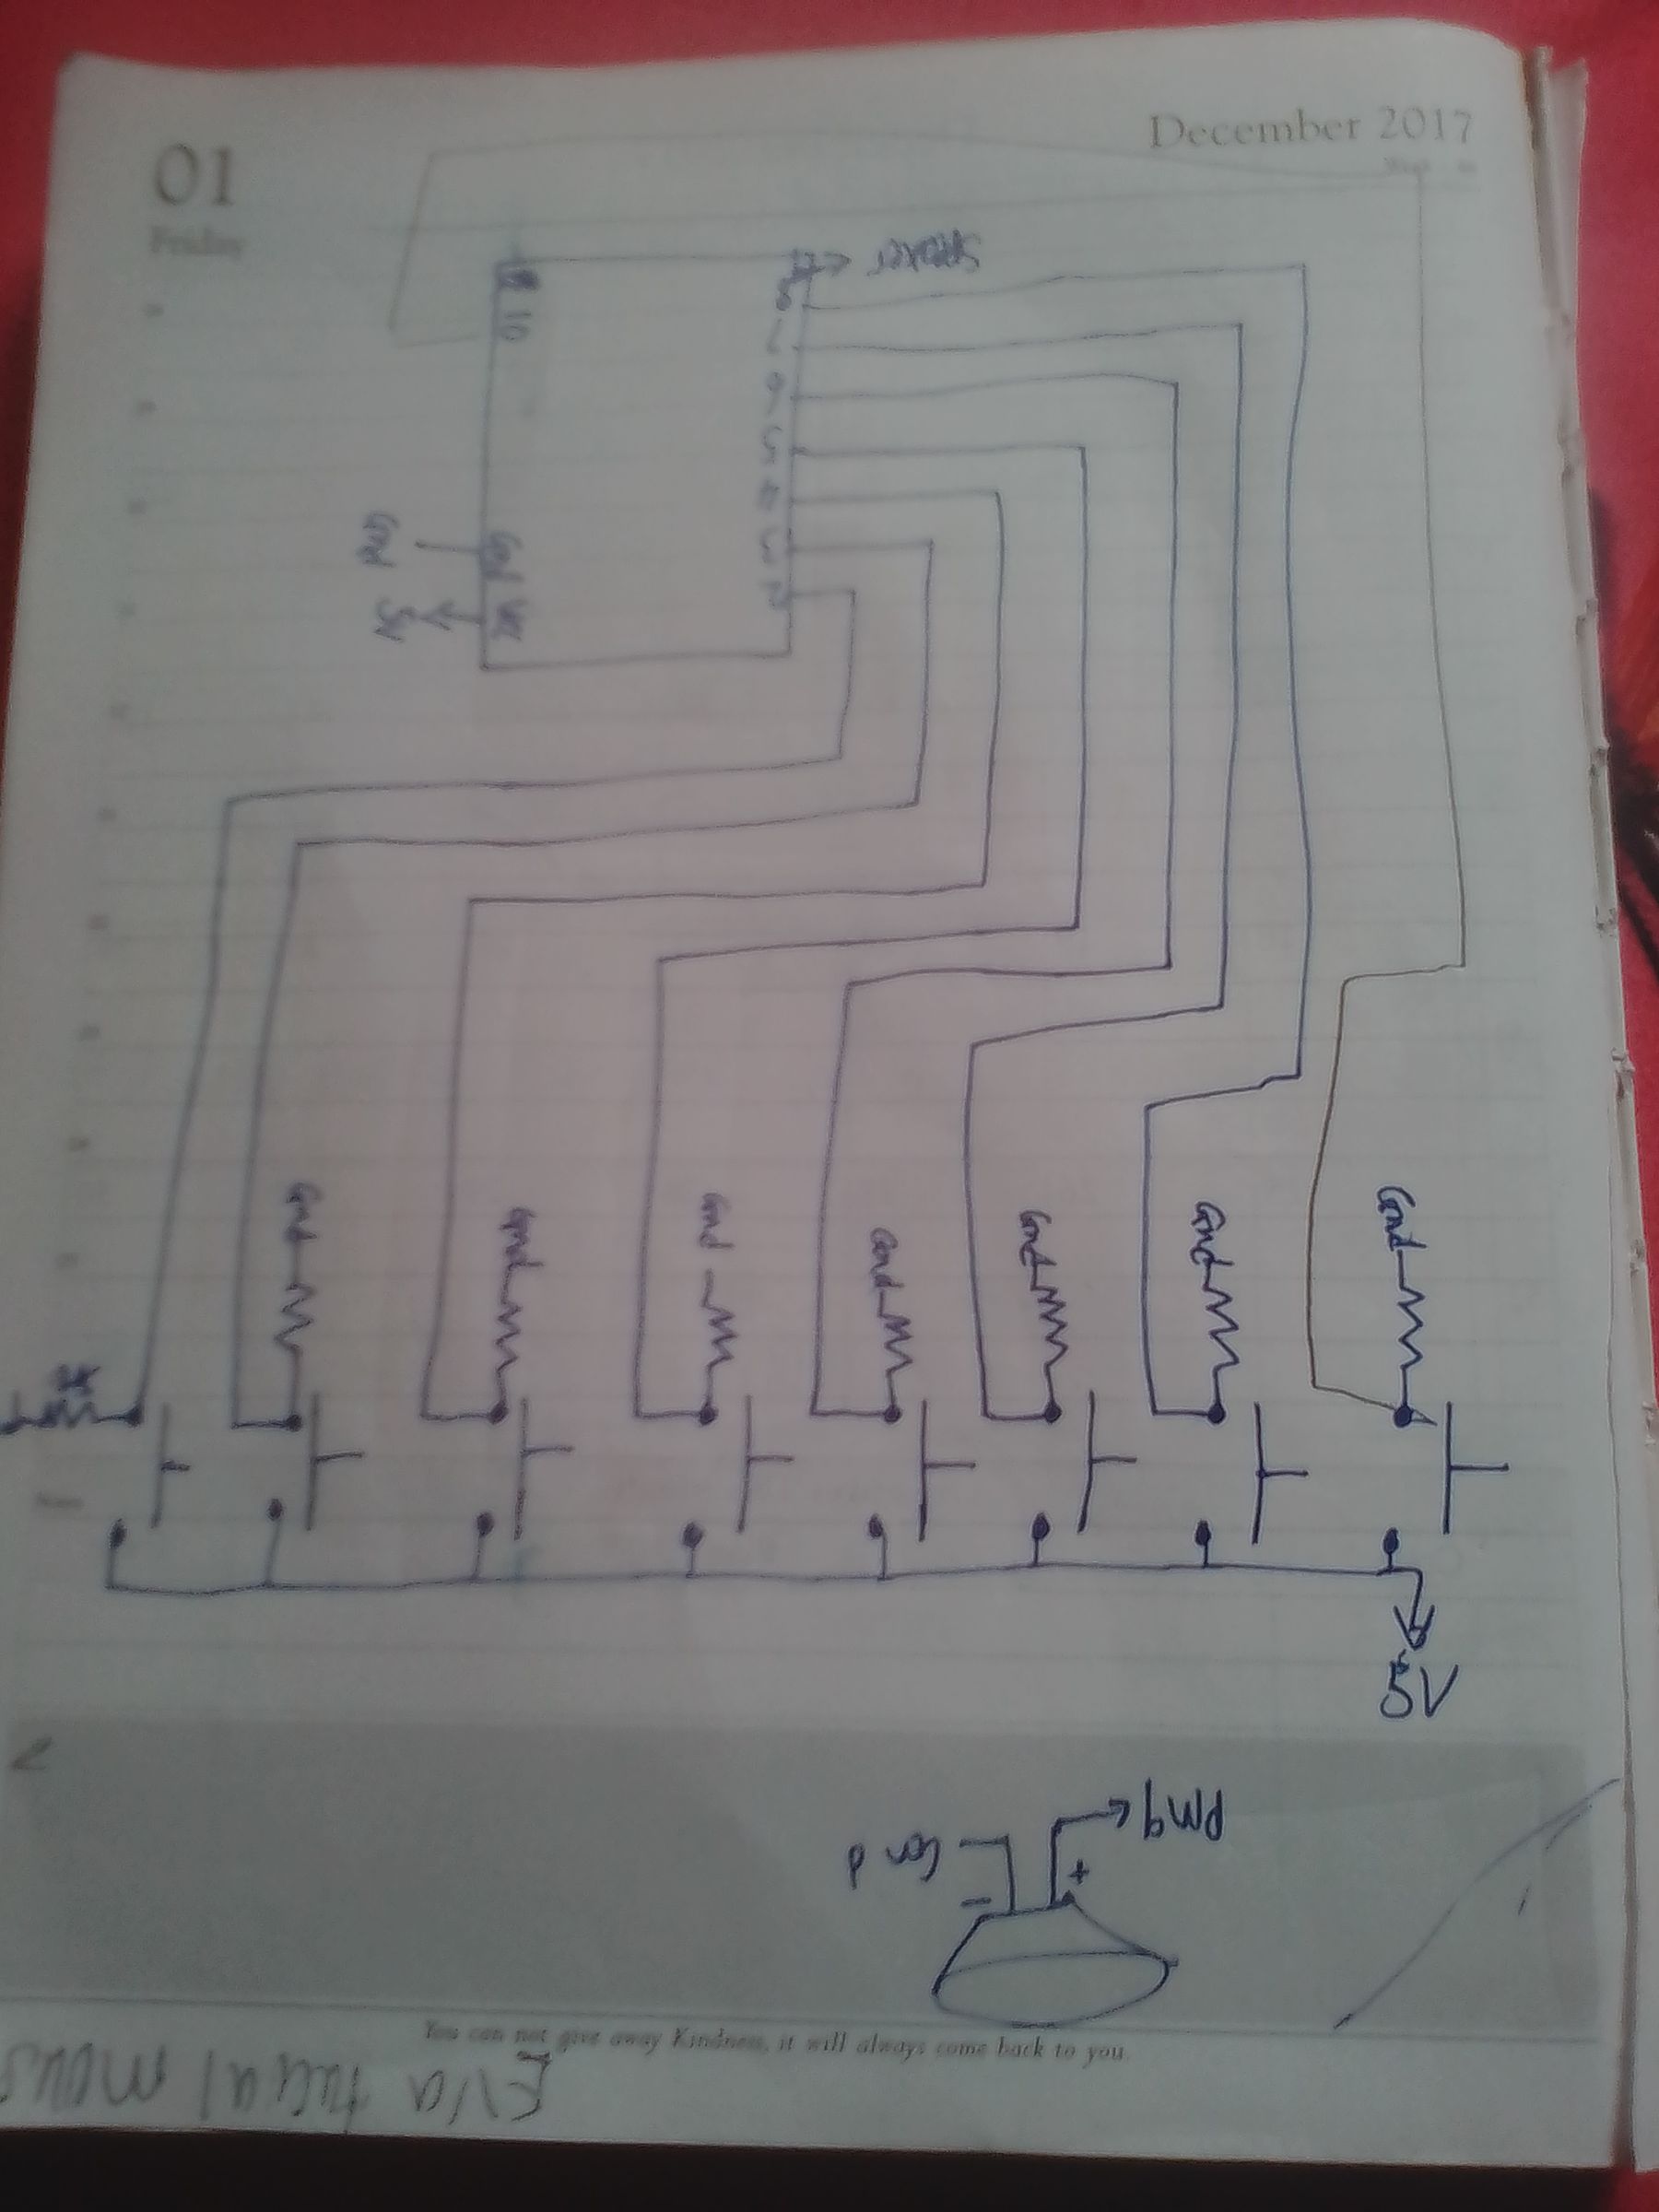 December 2017
01
Friday
Speaker
8
10
7
6
5
4
3
2
Gnd
Gnd
Vcc
5V
Gnd
Gnd
Gnd
Gnd
Gnd
Gnd
Gnd
5V
Pm9
Gnd
+
-
You can not give away Kindness, it will always come back to you.